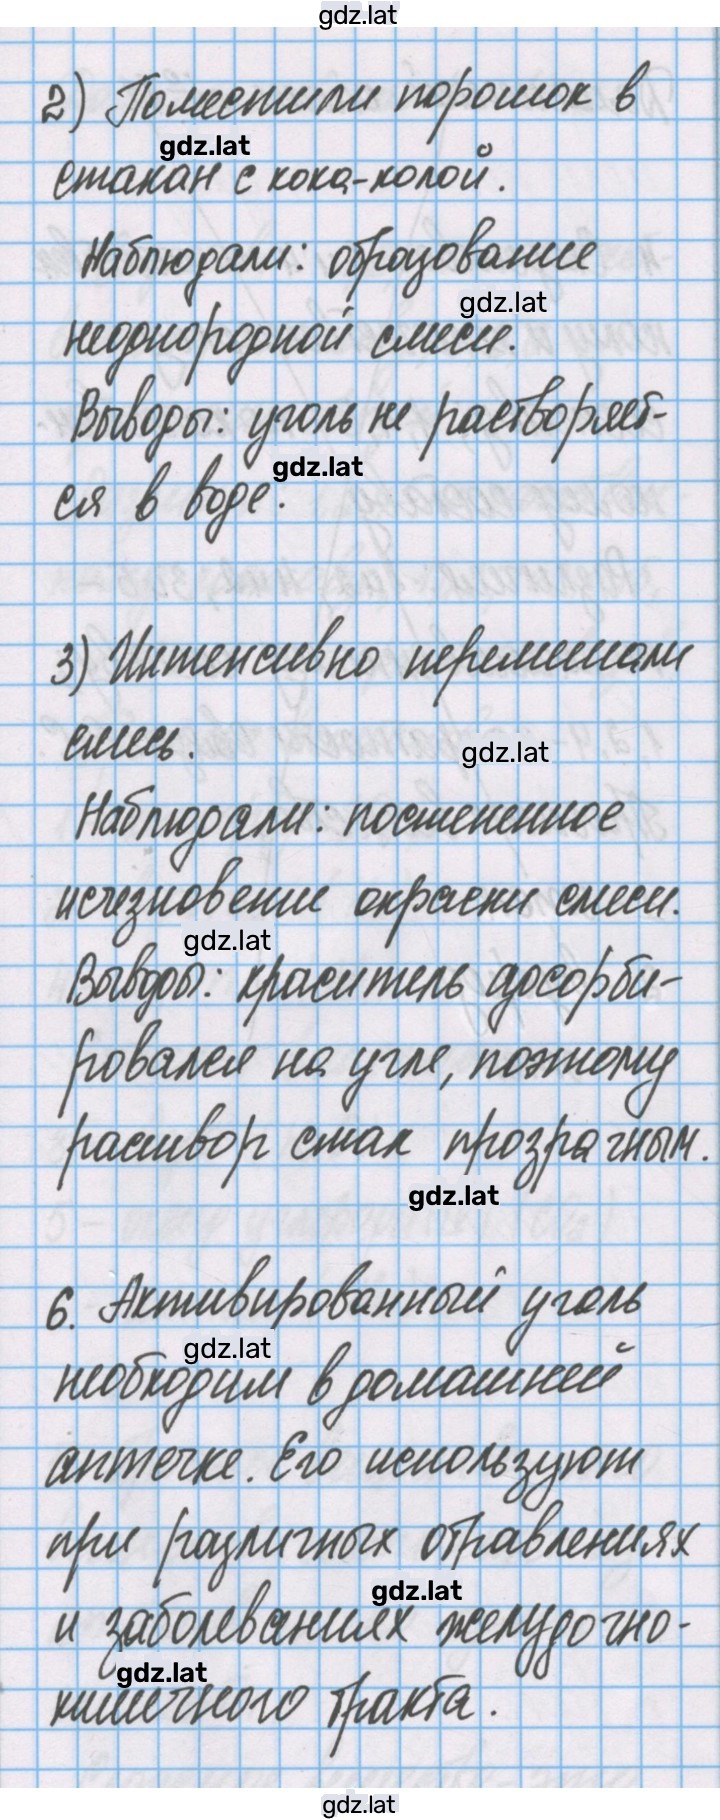 gdz.lat
2) Поместили порошок в
gdz.lat
стакан с кока-колой.
Наблюдали: образование
gdz.lat
неоднородной смеси.
Выводы: уголь не растворяет-
gdz.lat
ся в воде.
3) Интенсивно перемешали
смесь.
gdz.lat
Наблюдали: постепенное
исчезновение окраски смеси.
gdz.lat
Выводы: краситель адсорби-
ровался на угле, поэтому
раствор стал прозрачным.
gdz.lat
6. Активированный уголь
gdz.lat
необходим в домашней
аптечке. Его используют
при различных отравлениях
gdz.lat
и заболеваниях желудочно-
gdz.lat
кишечного тракта.
gdz.lat